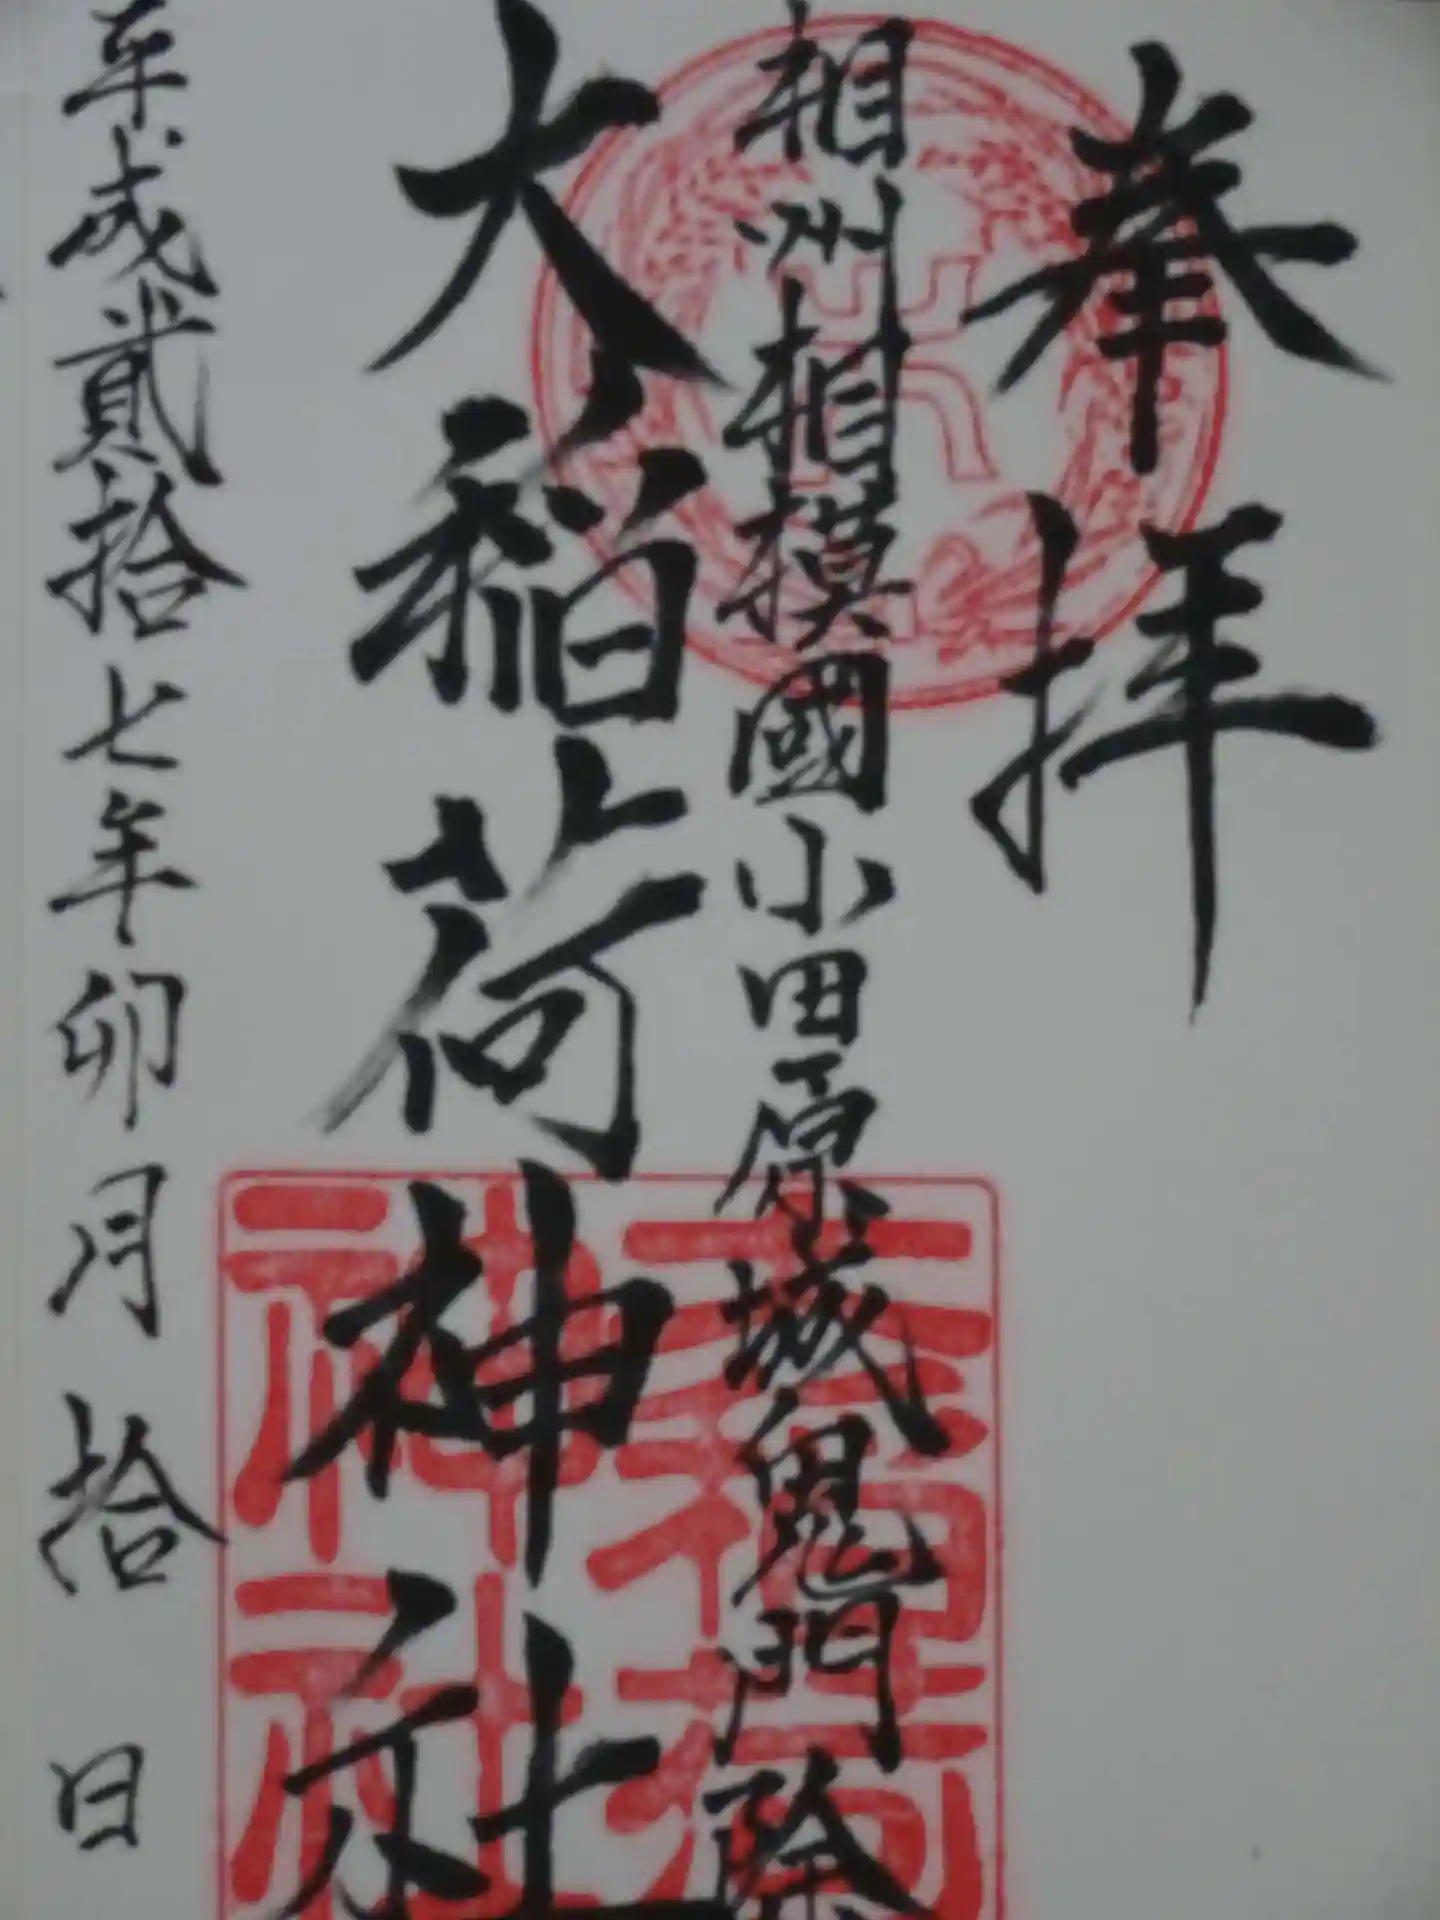 奉拝
相州相模國小田原城鬼門除
大稲荷神社
平成貳拾七年卯月拾日
大稲荷
神社